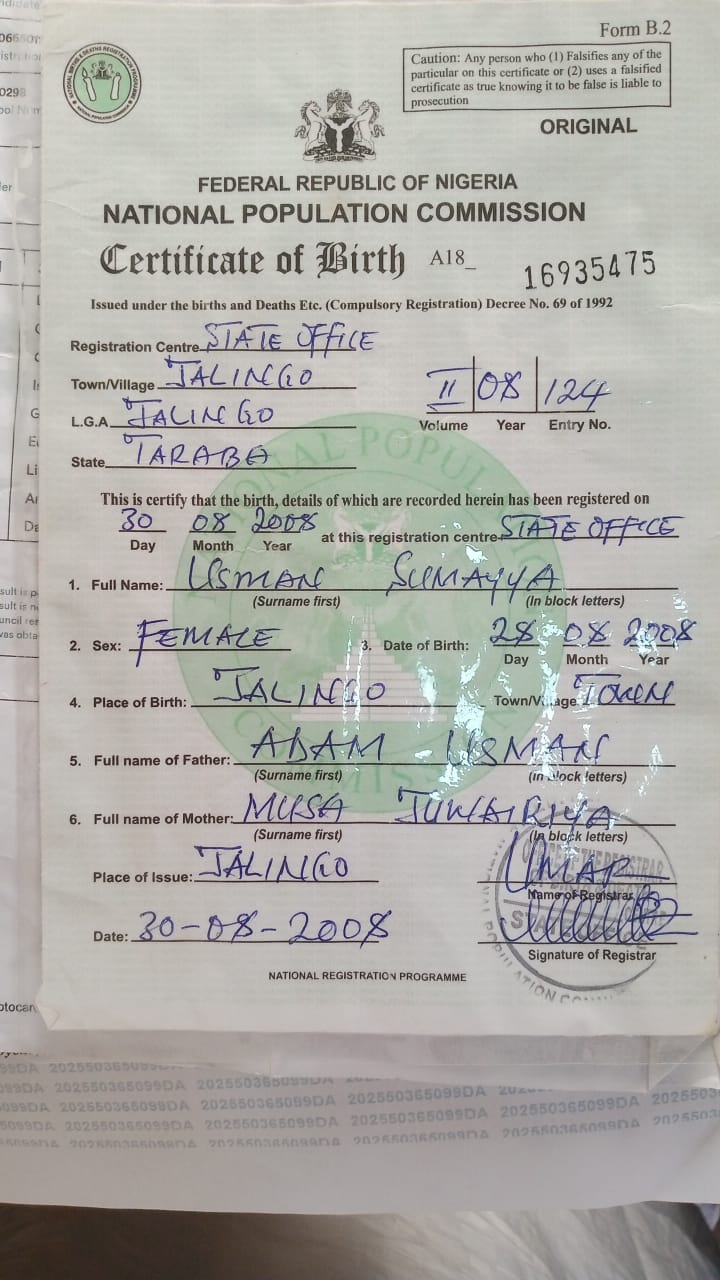 Form B.2
Caution: Any person who (1) Falsifies any of the
particular on this certificate or (2) uses a falsified
certificate as true knowing it to be false is liable to
prosecution
ORIGINAL
FEDERAL REPUBLIC OF NIGERIA
NATIONAL POPULATION COMMISSION
Certificate of Birth A18_ 16935475
Issued under the births and Deaths Etc. (Compulsory Registration) Decree No. 69 of 1992
Registration Centre STATE OFFICE
Town/Village JALINGO
L.G.A. JALINGO
II 08 124
Volume Year Entry No.
State TARABA
This is certify that the birth, details of which are recorded herein has been registered on
30 08 2008 at this registration centre STATE OFFICE
Day Month Year
1. Full Name: USMAN SUMAYYA
(Surname first) (In block letters)
2. Sex: FEMALE 3. Date of Birth: 28 08 2008
Day Month Year
4. Place of Birth: JALINGO Town/Village TOWN
5. Full name of Father: ADAM USMAN
(Surname first) (in block letters)
6. Full name of Mother: MUSA JUWAIRIYA
(Surname first) (In block letters)
Place of Issue: JALINGO UMAR
Name of Registrar
Date: 30-08-2008
Signature of Registrar
NATIONAL REGISTRATION PROGRAMME
202550365099DA 202550365099DA
202550365099DA 202550365099DA 202550365099DA